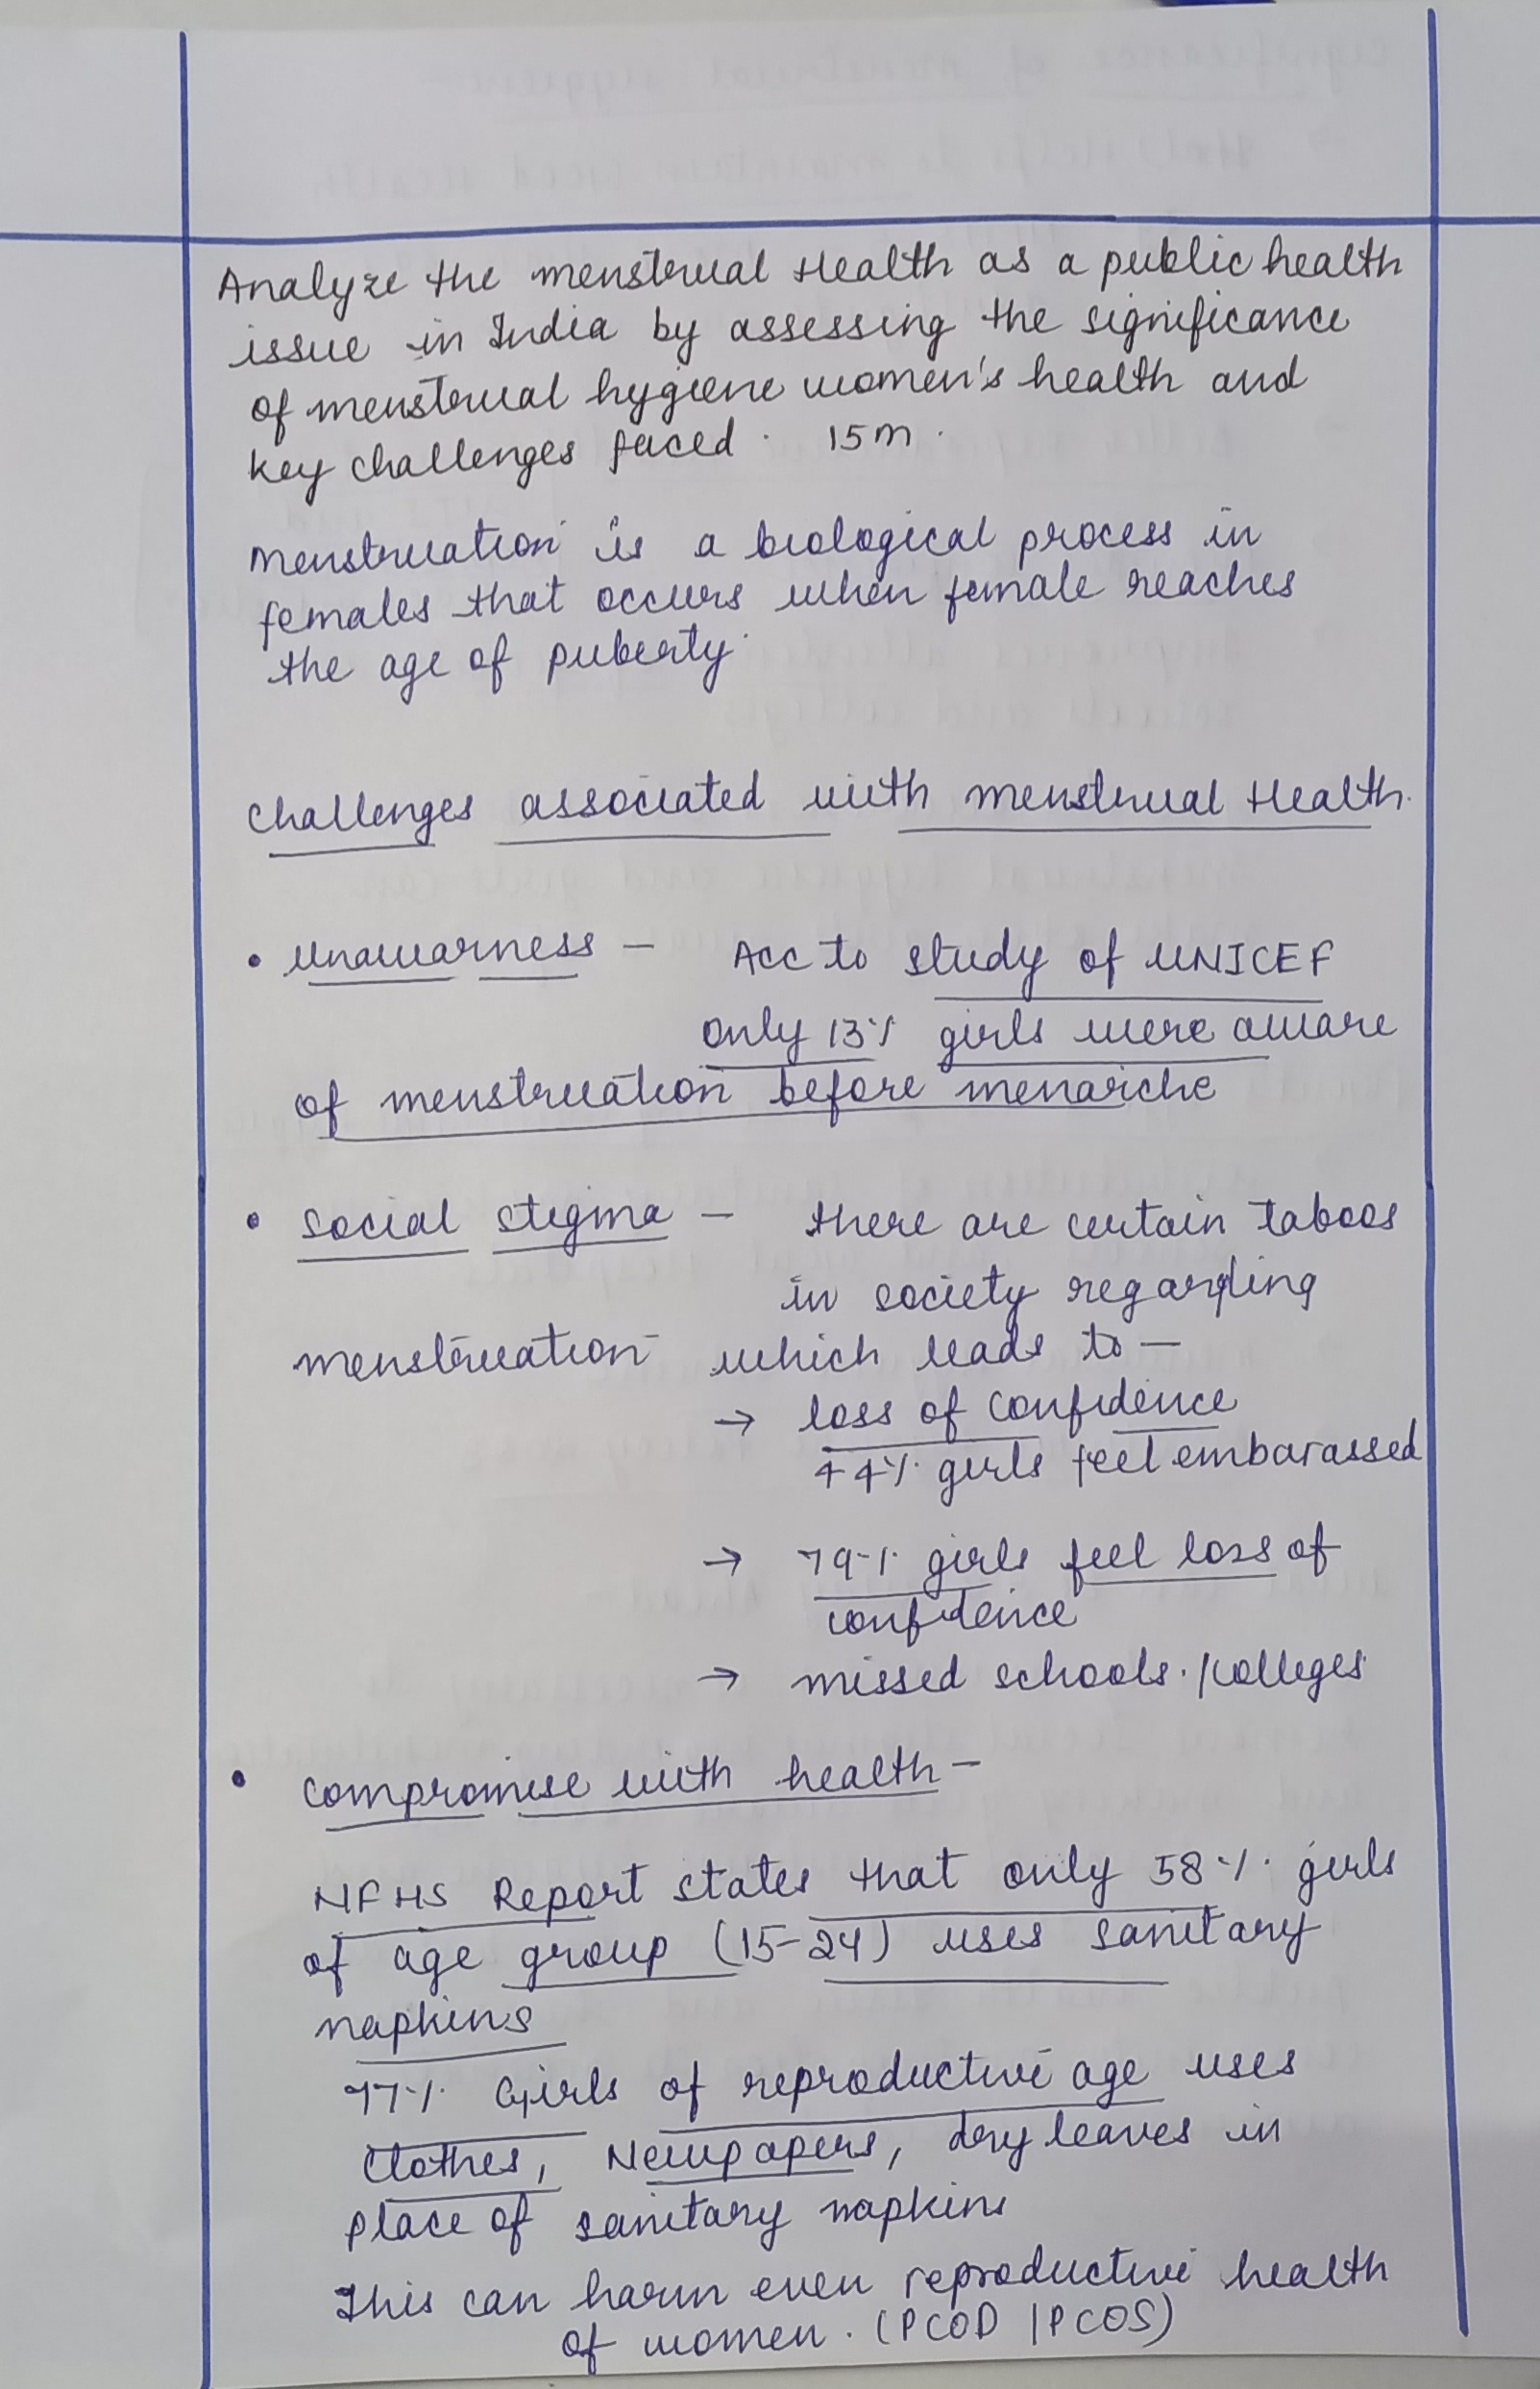 Analyze the menstrual Health as a public health
issue in India by assessing the significance
of menstrual hygiene women's health and
key challenges faced. 15m.
Menstruation is a biological process in
females that occurs when female reaches
the age of puberty.
Challenges associated with menstrual Health.
• Unawarness — Acc to study of UNICEF
only 13% girls were aware
of menstruation before menarche
• Social stigma — there are certain taboos
in society regarding
menstruation which leads to —
→ loss of confidence
44% girls feel embarassed
→ 79% girls feel loss of
confidence
→ missed schools./colleges
• Compromise with health —
NFHS Report states that only 58% girls
of age group (15-24) uses sanitary
napkins
77% Girls of reproductive age uses
Clothes, Newspapers, dry leaves in
place of sanitary napkins
This can harm even reproductive health
of women. (PCOD | PCOS)